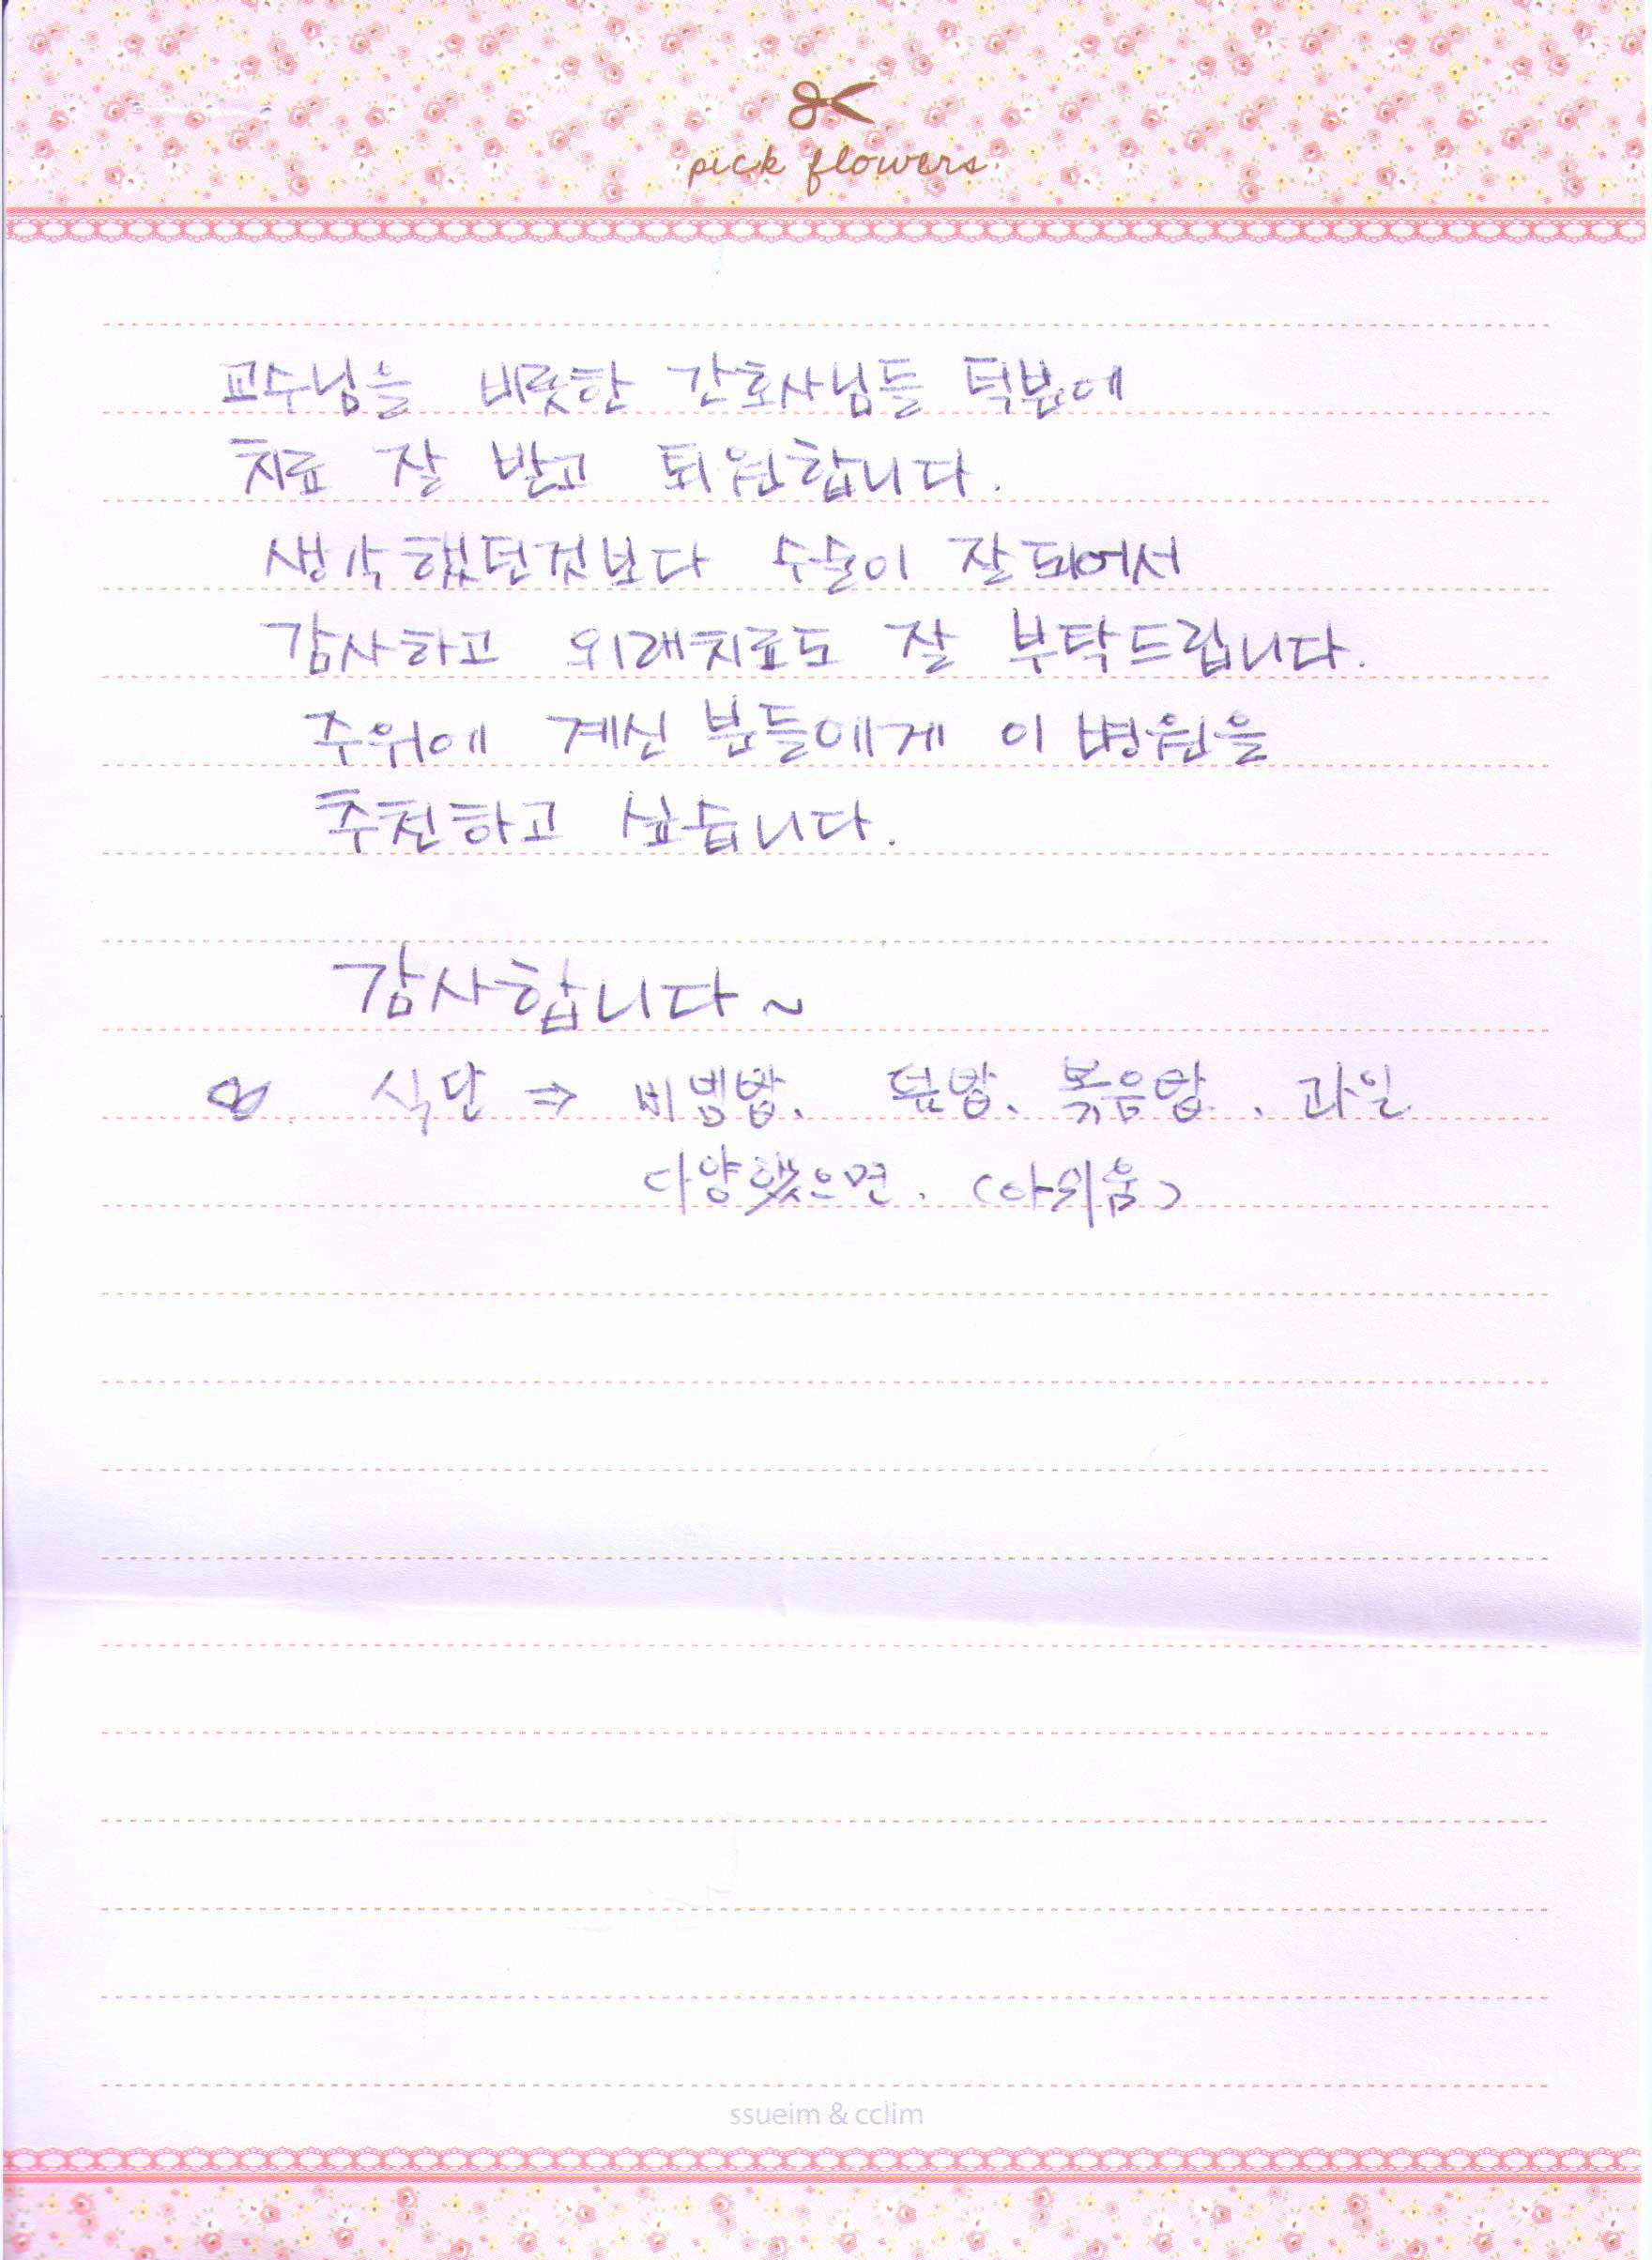 pick flowers
교수님을 비롯한 간호사님들 덕분에
치료 잘 받고 퇴원합니다.
생각했던것보다 수술이 잘되어서
감사하고 외래치료도 잘 부탁드립니다.
주위에 계신 분들에게 이 병원을
추천하고 싶습니다.
감사합니다~
식단 ⇒ 비빔밥, 덮밥, 볶음밥, 과일
다양했으면. (아쉬움)
ssueim & cclim